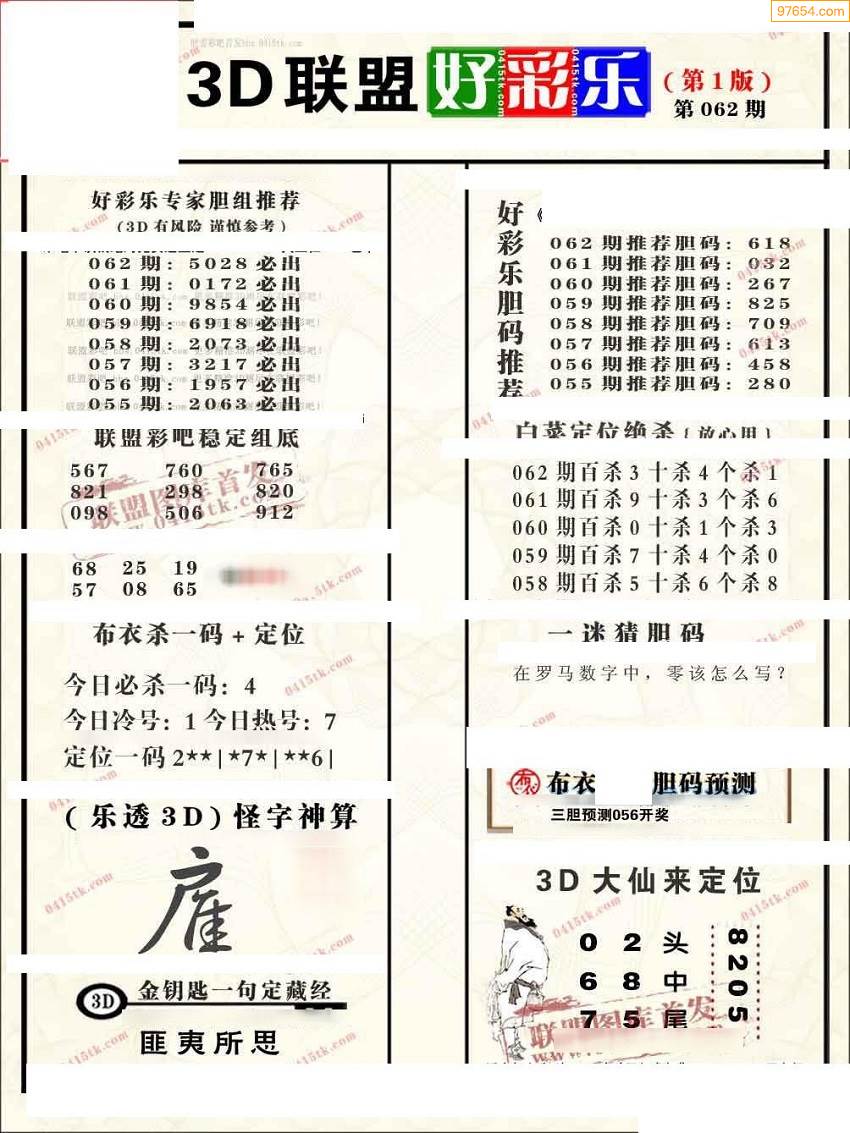 97654.com
3D联盟好彩乐
(第1版)
第062期
好彩乐专家胆组推荐
(3D有风险 谨慎参考)
062期：5028必出
061期：0172必出
060期：9854必出
059期：6918必出
058期：2073必出
057期：3217必出
056期：1957必出
055期：2063必出
联盟彩吧稳定组底
567 760 765
821 298 820
098 506 912
68 25 19
57 08 65
布衣杀一码+定位
今日必杀一码：4
今日冷号：1 今日热号：7
定位一码2**|*7*|**6|
(乐透3D)怪字神算
3D
金钥匙一句定藏经
匪夷所思
好彩乐胆码推荐
062期推荐胆码：618
061期推荐胆码：032
060期推荐胆码：267
059期推荐胆码：825
058期推荐胆码：709
057期推荐胆码：613
056期推荐胆码：458
055期推荐胆码：280
白菜定位绝杀{放心用}
062期百杀3十杀4个杀1
061期百杀9十杀3个杀6
060期百杀0十杀1个杀3
059期百杀7十杀4个杀0
058期百杀5十杀6个杀8
一迷猜胆码
在罗马数字中，零该怎么写？
布衣 胆码预测
三胆预测056开奖
3D大仙来定位
0 2 头
6 8 中
7 5 尾
8205
联盟图库首发
0415tk.com